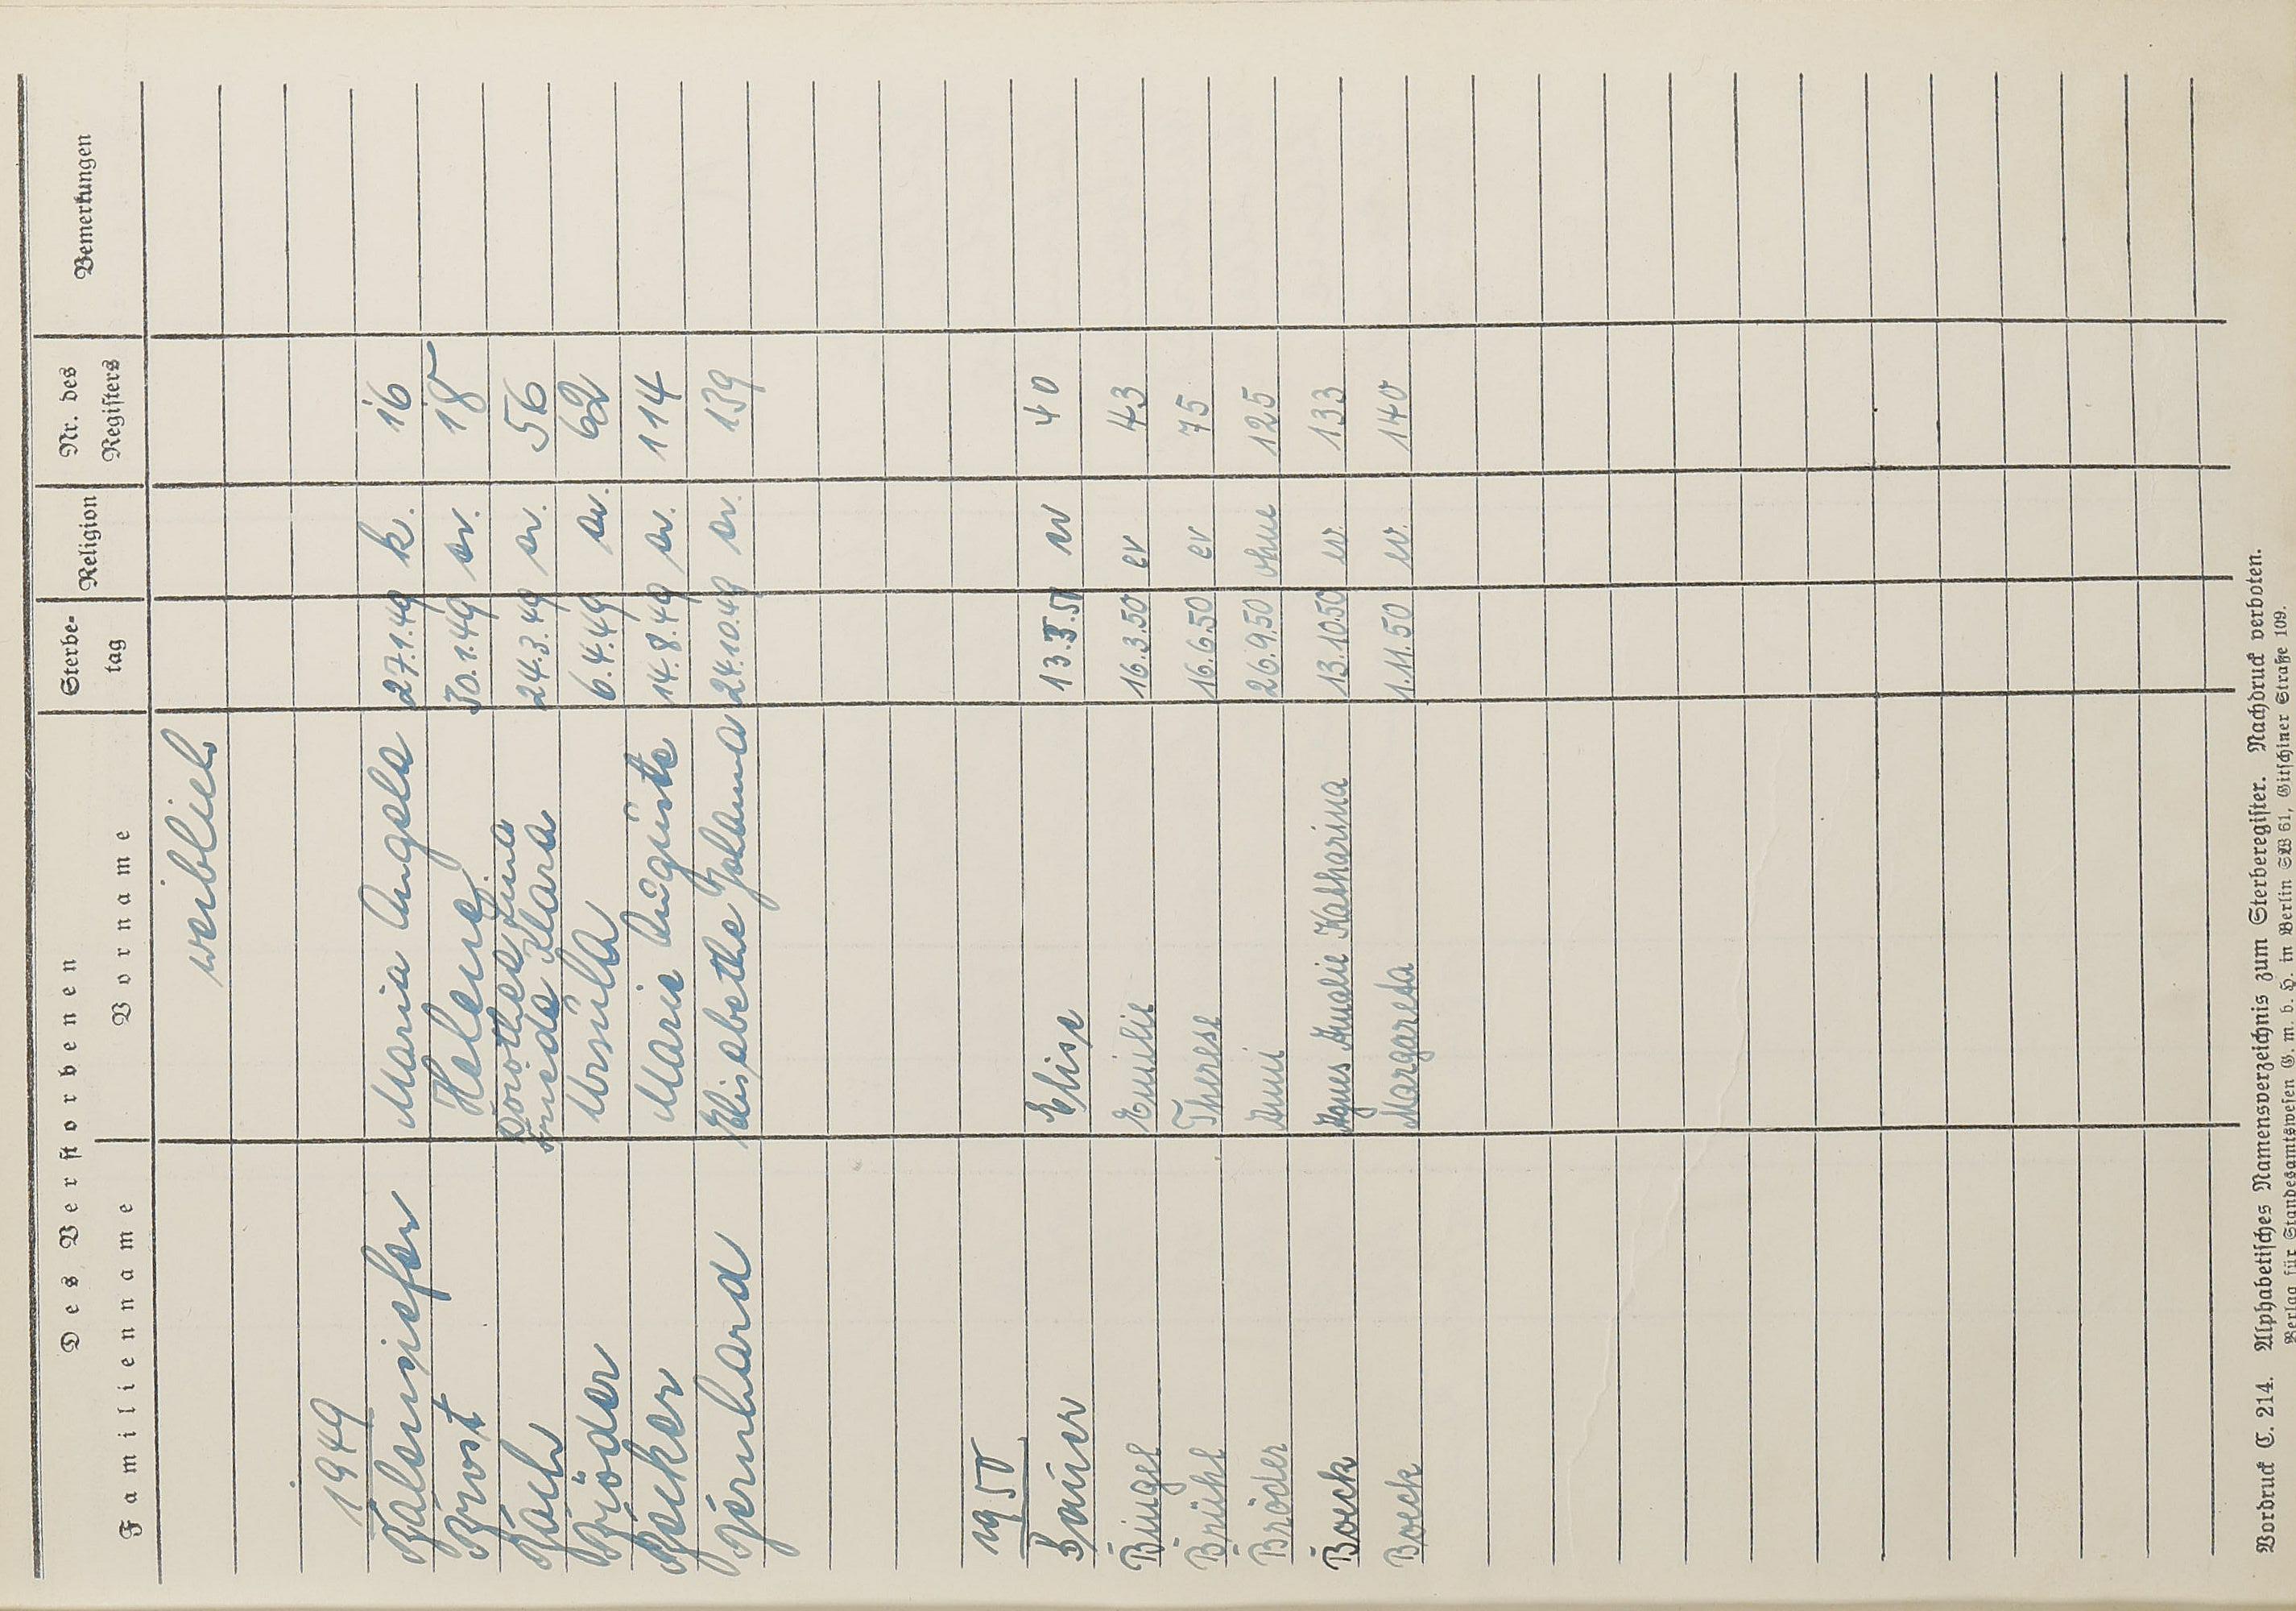 Des Verstorbenen
Familienname Vorname Sterbe-tag Religion Nr. des Registers Bemerkungen
weiblich
1949
Balensiefer Maria Angela 27.1.49 k. 16
Brost Helene 30.1.49 ev. 18
Bach Dorothea Lina Frieda Klara 24.3.49 ev. 56
Bröder Ursula 6.4.49 ev. 62
Becker Marie Auguste 14.8.49 ev. 114
Bernhard Elisabetha Johanna 24.10.49 ev. 139
1950
Bauer Elise 13.3.50 ev 40
Büngel Emilie 16.3.50 ev 43
Brühl Therese 16.6.50 ev 75
Bröder Anni 26.9.50 ohne 125
Boeck Agnes Amalie Katharina 13.10.50 ev. 133
Boeck Margareta 1.11.50 ev. 140
Vordruck C. 214. Alphabetisches Namensverzeichnis zum Sterberegister. Nachdruck verboten.
Verlag für Standesamtswesen G. m. b. H. in Berlin SW 61, Gitschiner Straße 109.